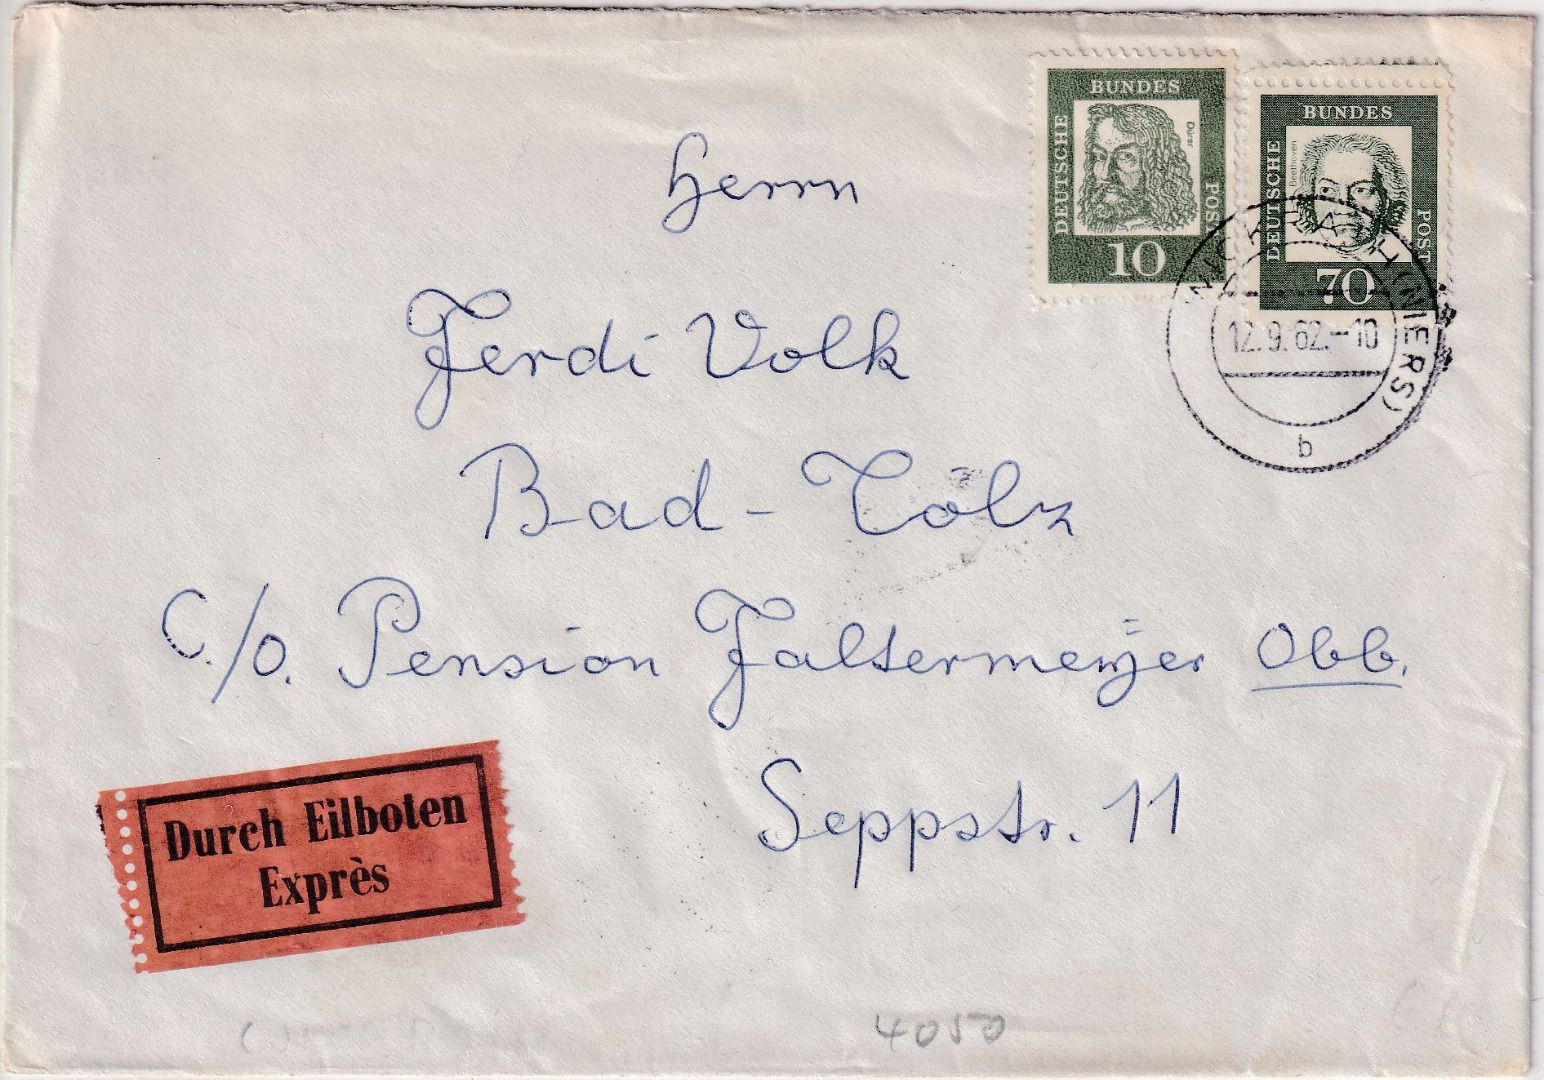 DEUTSCHE BUNDES POST
Dürer
10
DEUTSCHE BUNDES POST
Beethoven
70
WICKRATH (NIERS)
12.9.62.-10
b
Herrn
Ferdi Volk
Bad-Tölz
C./o. Pension Faltermeijer Obb.
Seppstr. 11
Durch Eilboten
Exprès
4050